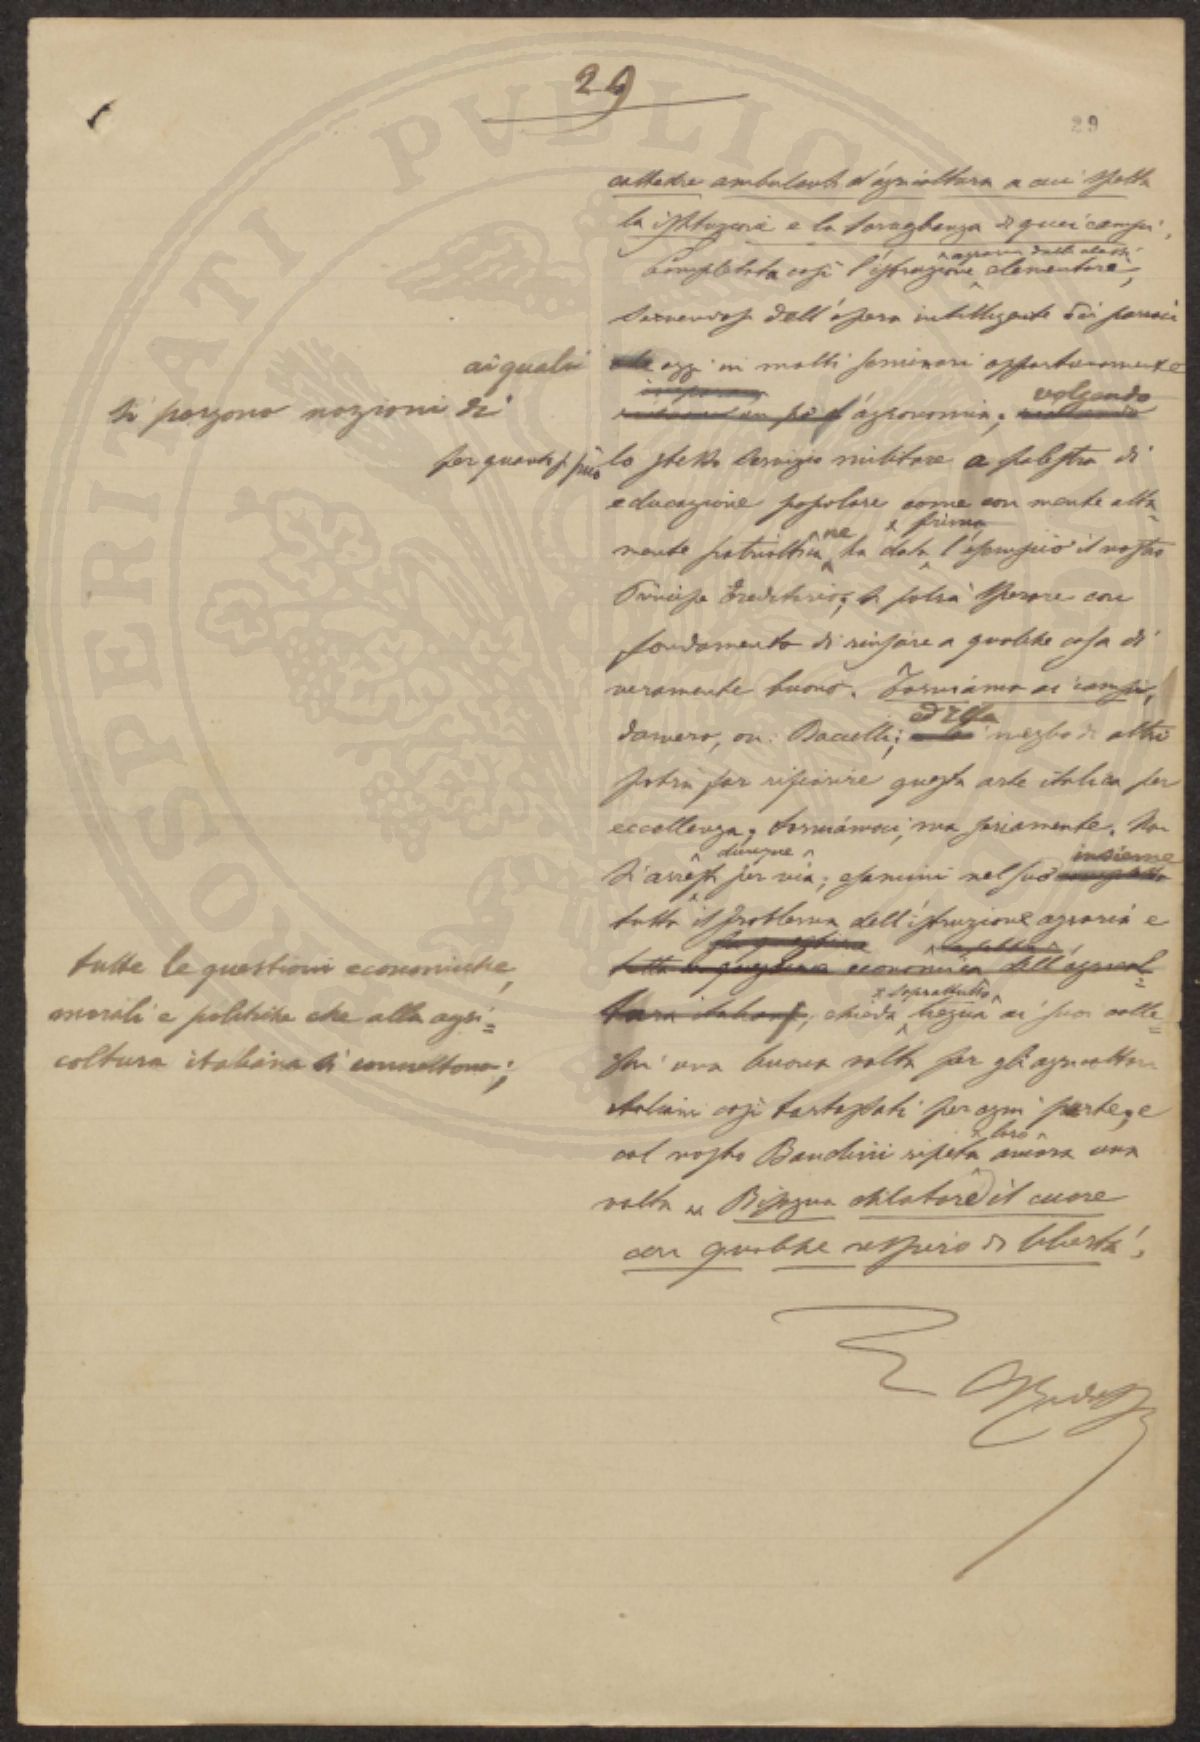 29
29
cattedre ambulanti d'agricoltura a cui spetta
la istituzione e la sorveglianza di quei campi.
Completata così l'istruzione agraria dalle classi elementare,
servendosi dell'opera intelligente dei parroci
ai quali oggi in molti seminari opportunamente
si porgono nozioni di d'agronomia; volgendo
per quanto si può lo stesso servizio militare a palestra di
educazione popolare come con mente alta-
mente patriottica ne ha dato prima l'esempio il nostro
Principe Ereditario; si potrà sperare con
fondamento di riuscire a qualche cosa di
veramente buono. Torniamo ai campi,
davvero, on. Baccelli; ed Ella meglio di altri
potrà far rifiorire questa arte italica per
eccellenza; torniamoci, ma seriamente. Non
si arresti dunque per via; esamini nel suo insieme
tutto il problema dell'istruzione agraria e
tutte le questioni economiche,
morali e politiche che alla agri=
coltura italiana si connettono;
chieda soprattutto tregua ai suoi colle=
ghi una buona volta per gli agricoltori
italiani così tartassati per ogni parte; e
col nostro Bandini ripeta loro ancora una
volta „ Bisogna dilatare il cuore
con qualche respiro di libertà.
PROSPERITATI PVBLICAE